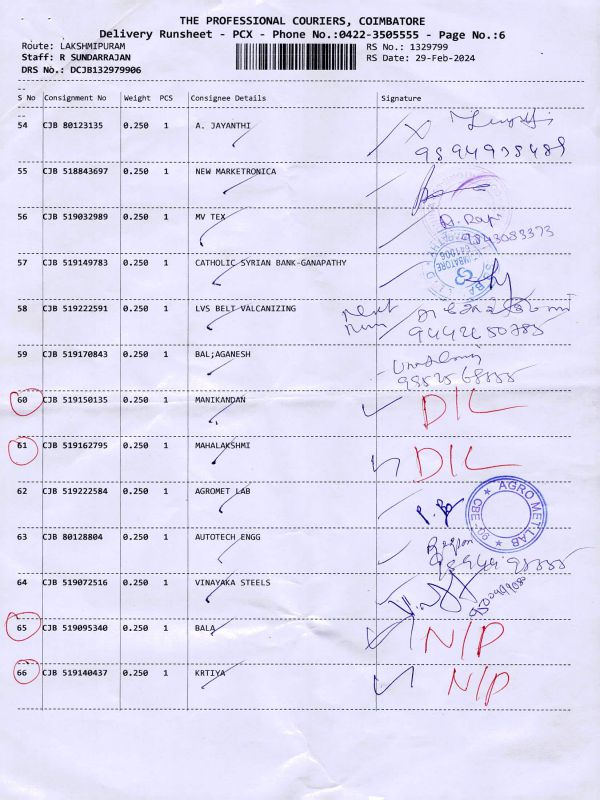 THE PROFESSIONAL COURIERS, COIMBATORE
Delivery Runsheet - PCX - Phone No.:0422-3505555 - Page No.:6
Route: LAKSHMIPURAM RS No.: 1329799
Staff: R SUNDARRAJAN RS Date: 29-Feb-2024
DRS No.: DCJB132979906
S No Consignment No Weight PCS Consignee Details Signature
54 CJB 80123135 0.250 1 A. JAYANTHI
55 CJB 518843697 0.250 1 NEW MARKETRONICA
56 CJB 519032989 0.250 1 MV TEX
9843083373
57 CJB 519149783 0.250 1 CATHOLIC SYRIAN BANK-GANAPATHY
58 CJB 519222591 0.250 1 LVS BELT VALCANIZING
59 CJB 519170843 0.250 1 BAL;AGANESH
60 CJB 519150135 0.250 1 MANIKANDAN D/L
61 CJB 519162795 0.250 1 MAHALAKSHMI D/L
62 CJB 519222584 0.250 1 AGROMET LAB
AGRO MET LAB
63 CJB 80128804 0.250 1 AUTOTECH ENGG
64 CJB 519072516 0.250 1 VINAYAKA STEELS
65 CJB 519095340 0.250 1 BALA N/P
66 CJB 519140437 0.250 1 KRTIYA N/P